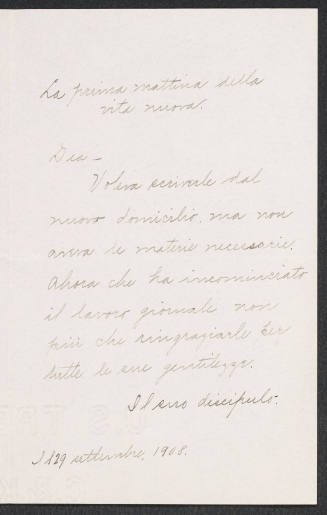 La prima mattina della
vita nuova.
Dea –
Voleva scriverle dal
nuovo domicilio, ma non
aveva le materie necessarie.
Ahora che ha incominciato
il lavoro giornale non
più che ringraziarle per
tutte le sue gentilezze.
Il suo discipulo.
Il 29 settembre, 1908.